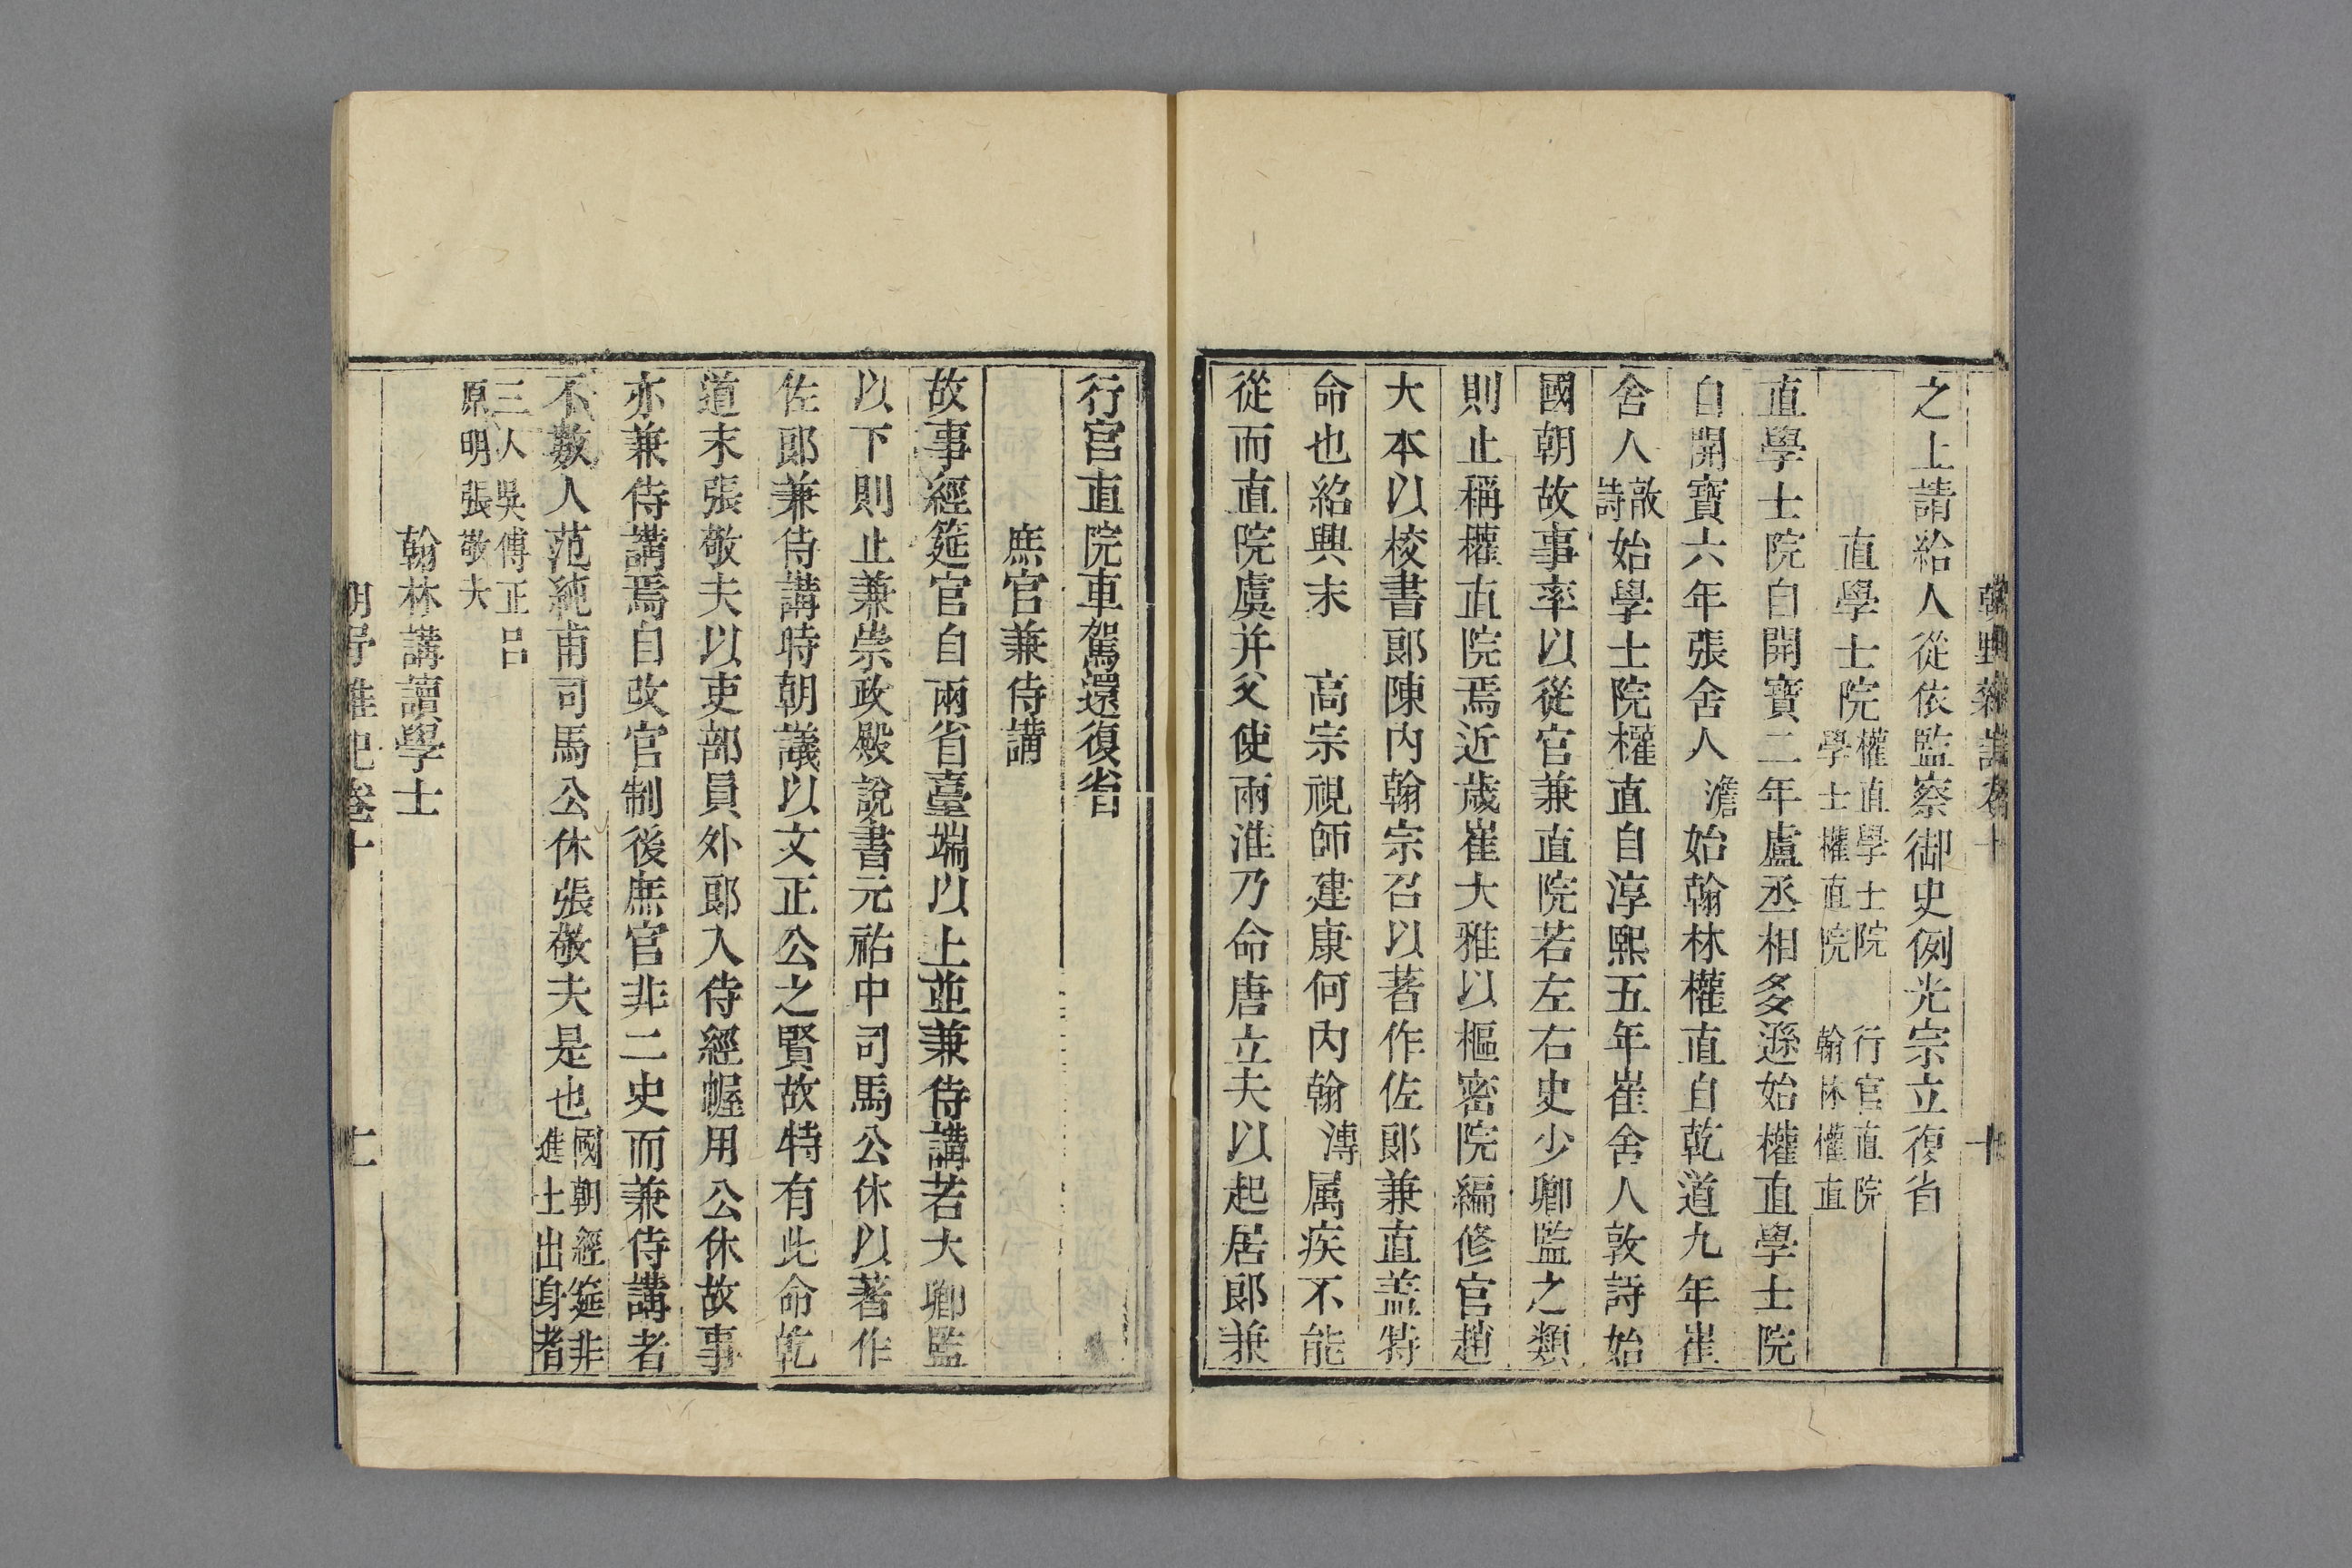 朝野雜記卷十 十
之上請給人從依監察御史例光宗立復省
直學士院
權直學士院 行官直院
學士權直院 翰林權直
直學士院自開寶二年盧丞相多遜始權直學士院
自開寶六年張舍人澹始翰林權直自乾道九年崔
舍人敦詩始學士院權直自淳熙五年崔舍人敦詩始
國朝故事率以從官兼直院若左右史少卿監之類
則止稱權直院焉近歲崔大雅以樞密院編修官趙
大本以校書郎陳内翰宗召以著作佐郎兼直盖特
命也紹興末 高宗視師建康何内翰溥属疾不能
從而直院虞并父使兩淮乃命唐立夫以起居郎兼
行宮直院車駕還復省
庶官兼侍講
故事經筵官自兩省臺端以上並兼侍講若大卿監
以下則止兼崇政殿說書元祐中司馬公休以著作
佐郎兼侍講時朝議以文正公之賢故特有此命乾
道末張敬夫以吏部員外郎入侍經幄用公休故事
亦兼侍講焉自改官制後庶官非二史而兼侍講者
不數人范純甫司馬公休張敬夫是也
國朝經筵非
進士出身者
三人吳傅正吕
原明張敬夫
翰林講讀學士
朝野雜記卷十 十一